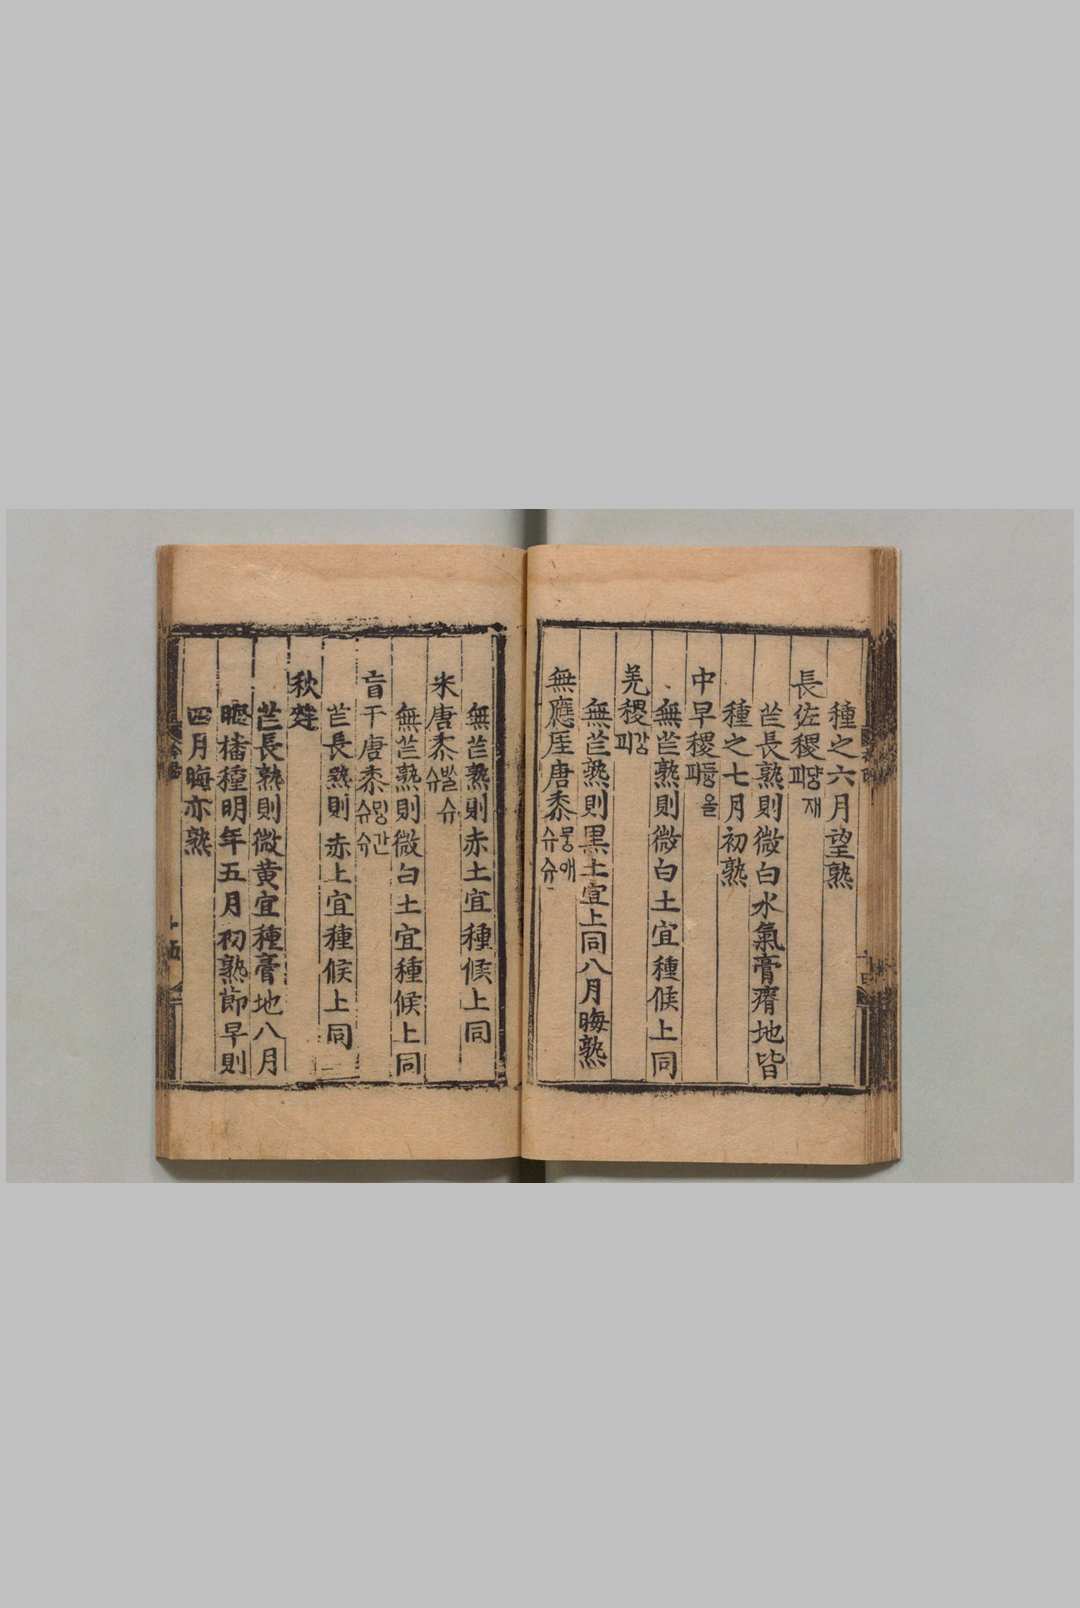 種之六月望熟
長佐稷장재피
芒長熟則微白水氣膏瘠地皆
種之七月初熟
中早稷듕올피
無芒熟則微白土宜種候上同
羌稷강피
無芒熟則黒土宜上同八月晦熟
無應厓唐黍뭉애슈슈
無芒熟則赤土宜種候上同
米唐黍ᄡᆞᆯ슈슈
無芒熟則微白土宜種候上同
盲干唐黍ᄆᆡᆼ간슈슈
芒長熟則赤土宜種候上同
秋麰
芒長熟則微黄宜種膏地八月
晦播種明年五月初熟節早則
四月晦亦熟